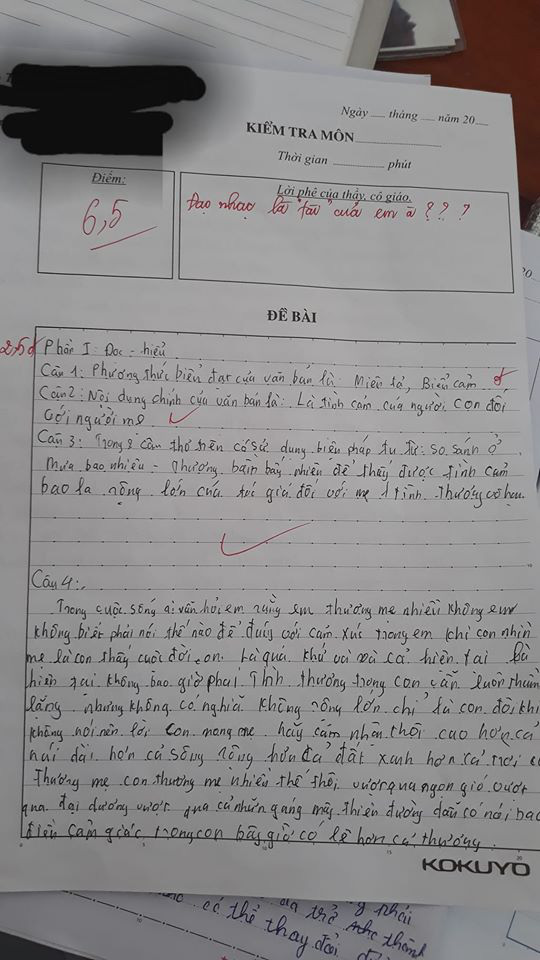 Ngày ___ tháng ___ năm 20___
KIỂM TRA MÔN
Thời gian ___ phút
Điểm:
6,5
Lời phê của thầy, cô giáo.
Đạo nhạc là "tài" của em à ? ? ?
ĐỀ BÀI
2,5đ
Phần I: Đọc - hiểu
Câu 1: Phương thức biểu đạt của văn bản là: Miêu tả, Biểu cảm
Câu 2: Nội dung chính của văn bản là: Là tình cảm của người con đối
với người mẹ
Câu 3: Trong 2 câu thơ trên có sử dụng biện pháp tu từ: so sánh ở
Mưa bao nhiêu - Thương bấy nhiêu để thấy được tình cảm
bao la rộng lớn của tác giả đối với mẹ 1 tình thương vô hạn
Câu 4:
Trong cuộc sống ai vẫn hỏi em rằng em thương mẹ nhiều không em
không biết phải nói thế nào để đúng với cảm xúc trong em khi con nhìn
mẹ là con thấy cuộc đời con. Là quá khứ và và cả hiện tại là
hiện tại không bao giờ phai. Tình thương trong con vẫn luôn thầm
lặng nhưng không có nghĩa không rộng lớn chỉ là con đôi khi
không nói nên lời con mong mẹ hãy cảm nhận thôi cao hơn cả
núi dài hơn cả sông rộng hơn cả đất xanh hơn cả trời
thương mẹ con thương mẹ nhiều thế thôi vượt qua ngọn gió vượt
qua đại dương vượt qua cả những gang mây thiên đường dẫu có nói bao
điều cảm giác trong con bây giờ có lẽ hơn cả thương.
KOKUYO
có thể thay đổi